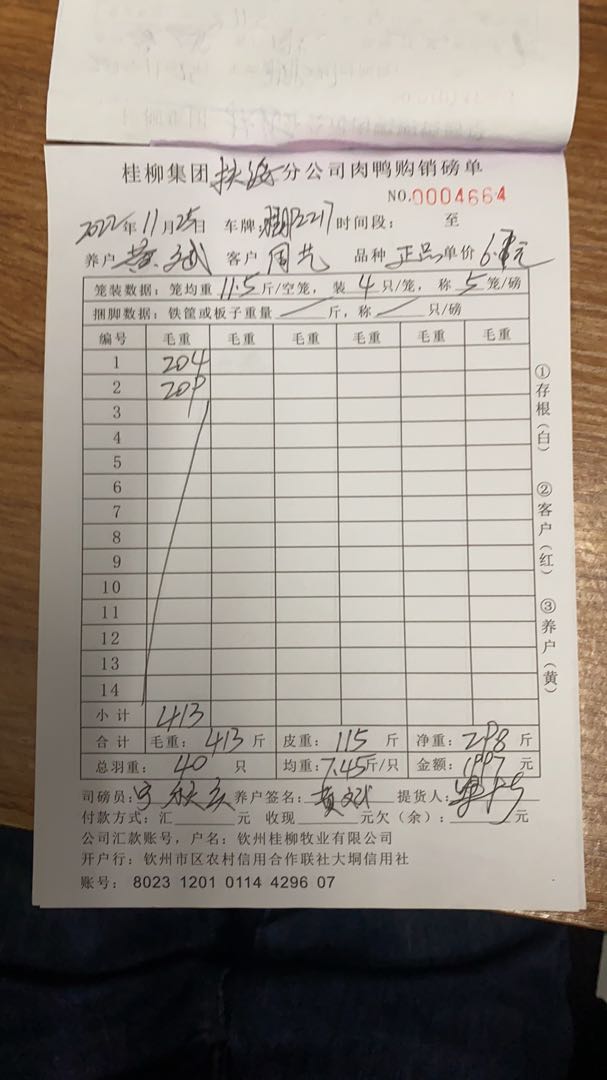 桂柳集团 分公司肉鸭购销磅单
NO.0004664
2022年11月25日 车牌: 2217 时间段: 至
养户 黄 斌 客户 周艺 品种 正品 单价 元
笼装数据: 笼均重 11.5 斤/空笼, 装 4 只/笼, 称 5 笼/磅
捆脚数据: 铁筐或板子重量 斤, 称 只/磅
编号 毛重 毛重 毛重 毛重 毛重 毛重
1 204
2 209
3
4
5
6
7
8
9
10
11
12
13
14
小计 413
合计 毛重: 413 斤 皮重: 115 斤 净重: 298 斤
总羽重: 40 只 均重: 7.45 斤/只 金额: 1997 元
司磅员: 养户签名: 黄斌 提货人:
付款方式: 汇 元 收现 元欠(余): 元
公司汇款账号, 户名: 钦州桂柳牧业有限公司
开户行: 钦州市区农村信用合作联社大垌信用社
账号: 8023 1201 0114 4296 07
①存根(白)
②客户(红)
③养户(黄)